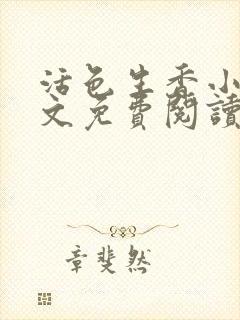 活色生香小
文免費閱讀
章斐然